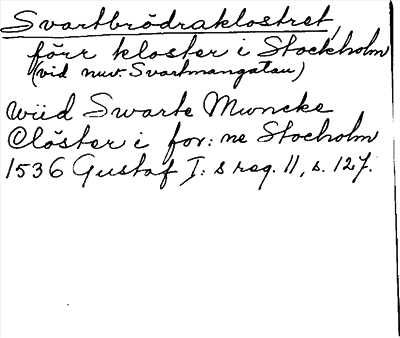 Svartbrödraklostret,
förr kloster i Stockholm
(vid nuv. Svartmangatan)
wiid Swarte Muncke
Clöster i for: ne Stocholm
1536 Gustaf I: s reg. 11, s. 127.